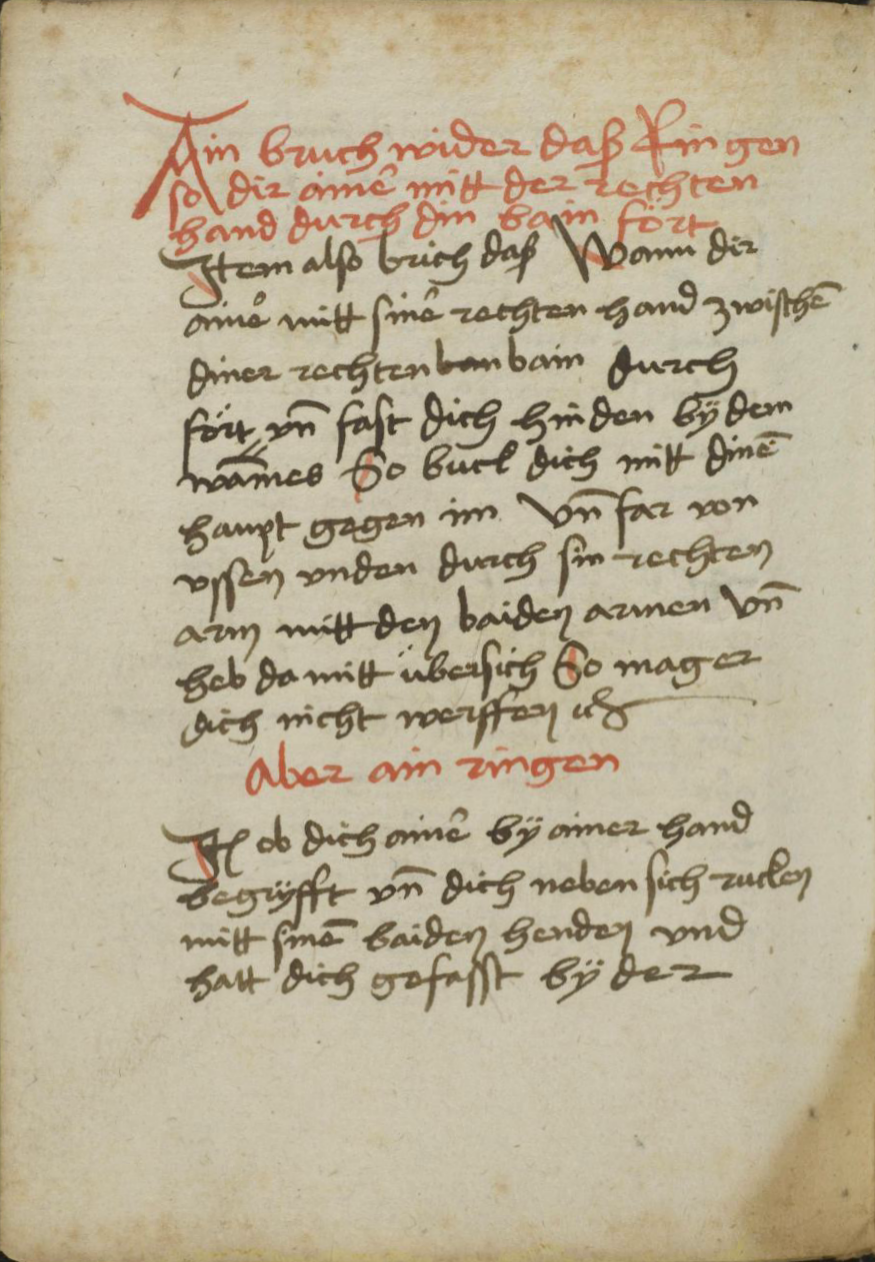 Ain bruch wider daß Ringen
so dir ainē mitt der rechten
hand durch din bain fört
Item also brich daß Wann dir
ainer mitt sinē rechten hand zwischē
diner rechten ban bain durch
fört vn̄ fast dich hinden bÿ dem
wam̄es So buck dich mitt dinē
haupt gegen im Vn̄ far von
vssen vnden durch sin rechten
arm mitt den baiden armen Vn̄
heb da mitt übersich So mag er
dich nicht werffen ꝛc
Aber ain ringen
Itē ob dich ainē bÿ ainer hand
begrÿfft vn̄ dich neben sich rucken
mitt sinē baiden henden vnd
hatt dich gefasst bÿ der